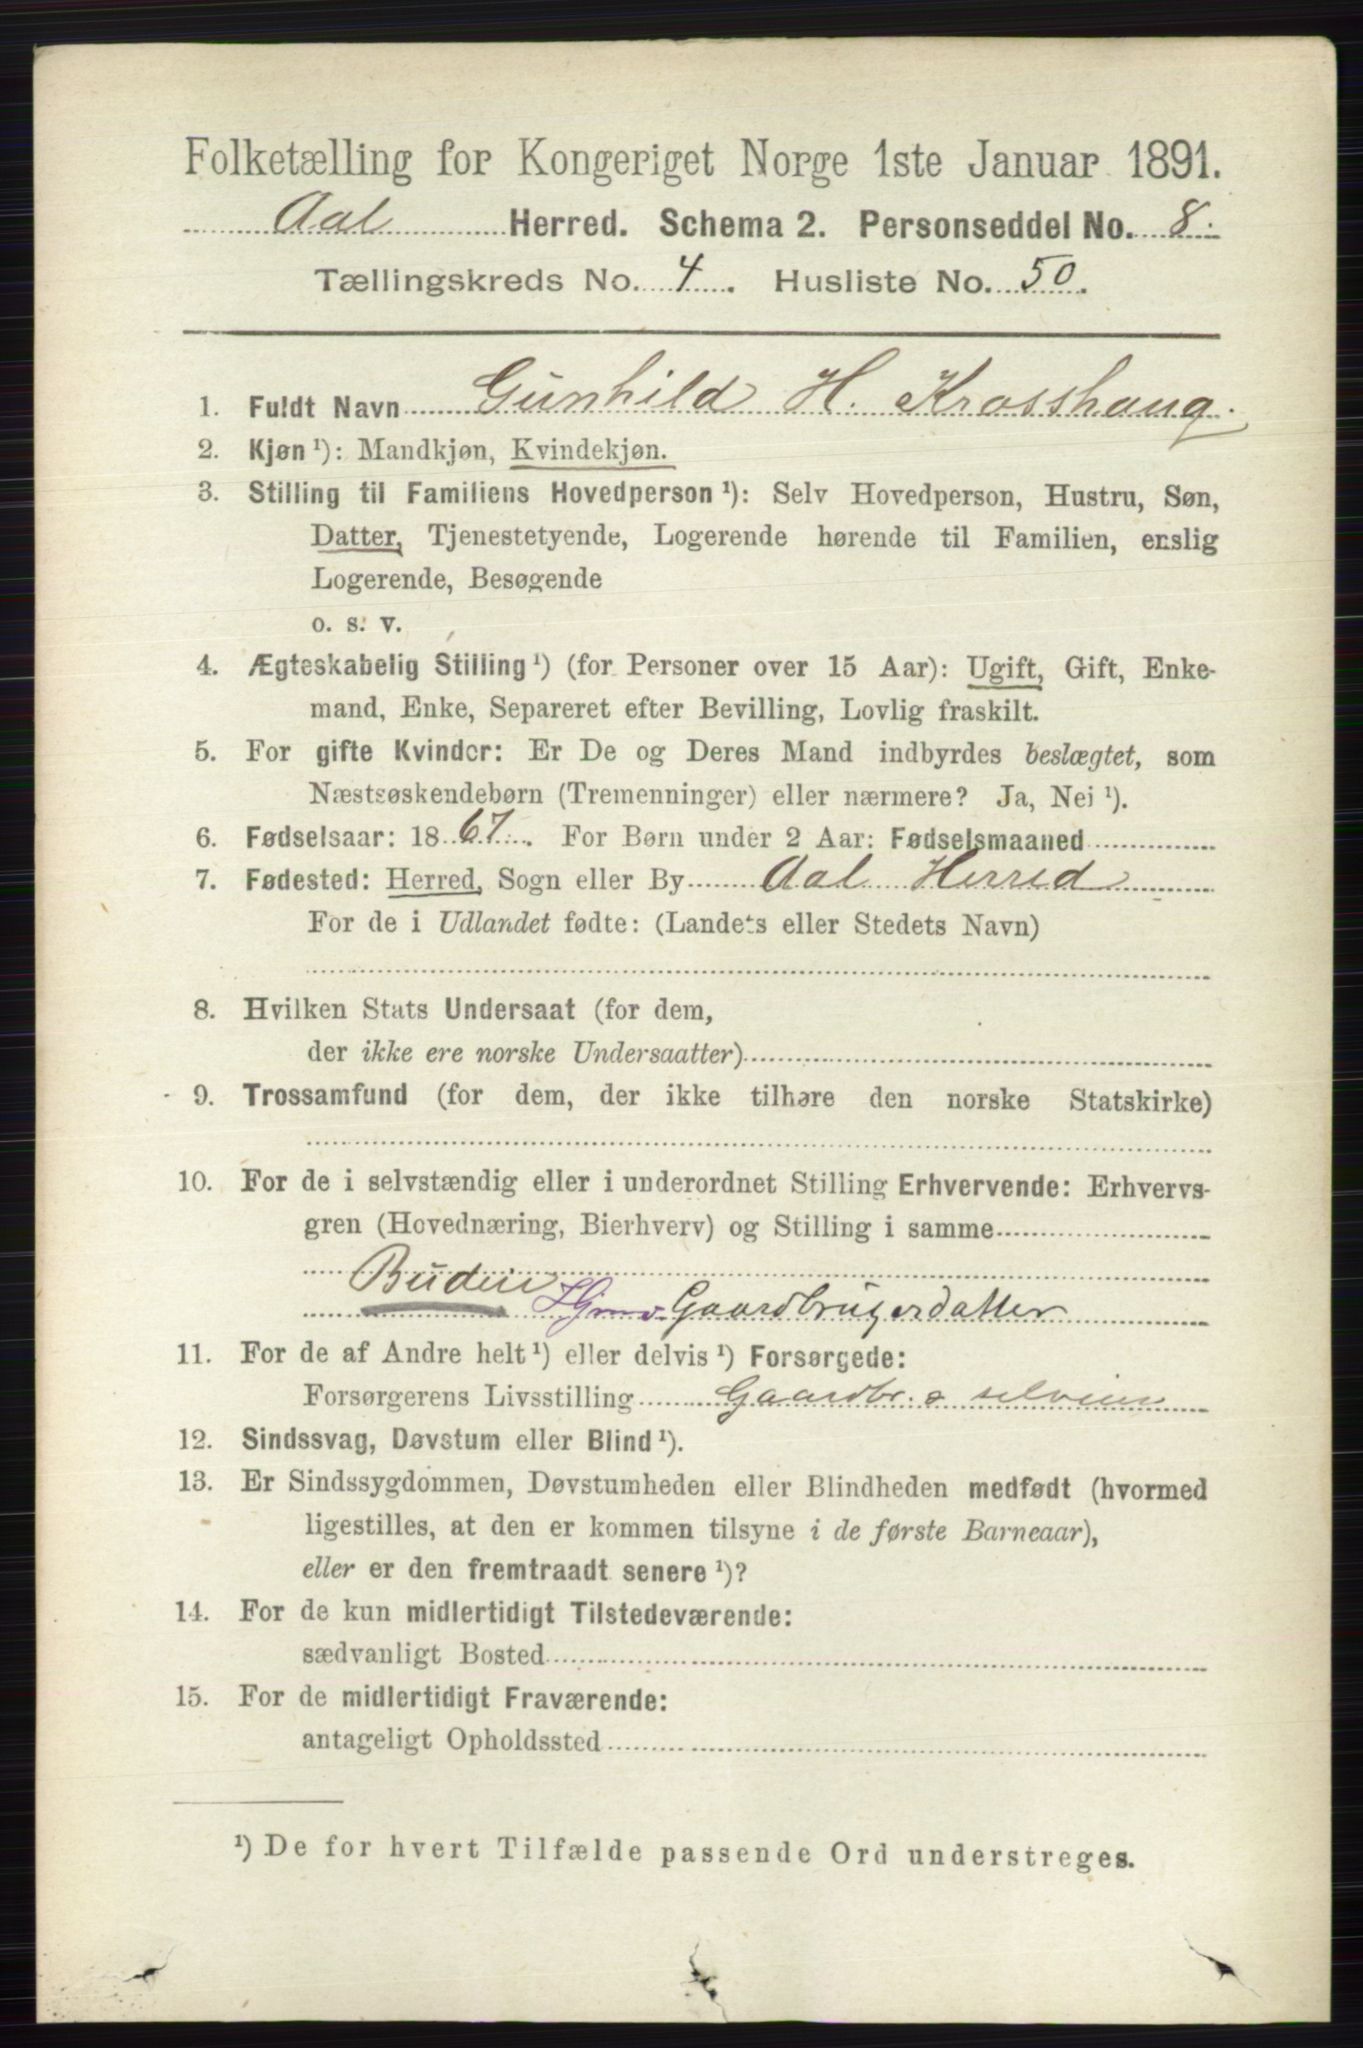 Folketælling for Kongeriget Norge 1ste Januar 1891.
Aal Herred. Schema 2. Personseddel No. 8.
Tællingskreds No. 4. Husliste No. 50.
1. Fuldt Navn Gunhild H. Krosshaug.
2. Kjøn ¹): Mandkjøn, Kvindekjøn.
3. Stilling til Familiens Hovedperson ¹): Selv Hovedperson, Hustru, Søn,
Datter, Tjenestetyende, Logerende hørende til Familien, enslig
Logerende, Besøgende
o. s. v.
4. Ægteskabelig Stilling ¹) (for Personer over 15 Aar): Ugift, Gift, Enke-
mand, Enke, Separeret efter Bevilling, Lovlig fraskilt.
5. For gifte Kvinder: Er De og Deres Mand indbyrdes beslægtet, som
Næstsøskendebørn (Tremenninger) eller nærmere? Ja, Nei ¹).
6. Fødselsaar: 1867. For Børn under 2 Aar: Fødselsmaaned
7. Fødested: Herred, Sogn eller By Aal Herred
For de i Udlandet fødte: (Landets eller Stedets Navn)
8. Hvilken Stats Undersaat (for dem,
der ikke ere norske Undersaatter)
9. Trossamfund (for dem, der ikke tilhøre den norske Statskirke)
10. For de i selvstændig eller i underordnet Stilling Erhvervende: Erhvervs-
gren (Hovednæring, Bierhverv) og Stilling i samme
Budeie
Gaardbrugerdatter
11. For de af Andre helt ¹) eller delvis ¹) Forsørgede:
Forsørgerens Livsstilling Gaardbr. & selveier
12. Sindssvag, Døvstum eller Blind ¹).
13. Er Sindssygdommen, Døvstumheden eller Blindheden medfødt (hvormed
ligestilles, at den er kommen tilsyne i de første Barneaar),
eller er den fremtraadt senere ¹)?
14. For de kun midlertidigt Tilstedeværende:
sædvanligt Bosted
15. For de midlertidigt Fraværende:
antageligt Opholdssted
¹) De for hvert Tilfælde passende Ord understreges.